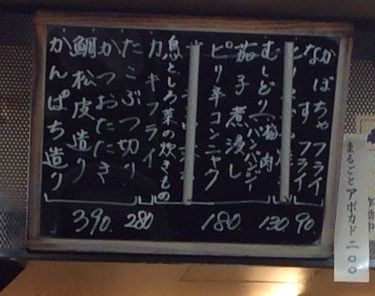 かぼちゃフライ
なすフライ
むしどり(梅肉
バンバンジー
茄子煮浸し
ピリ辛コンニャク
魚としろ菜の炊きもの
カキフライ
たこぶつ切り
かつおたたき
鯛松皮造り
かんぱち造り
90
130
180
280
390.
まるごとアボカド二〇〇